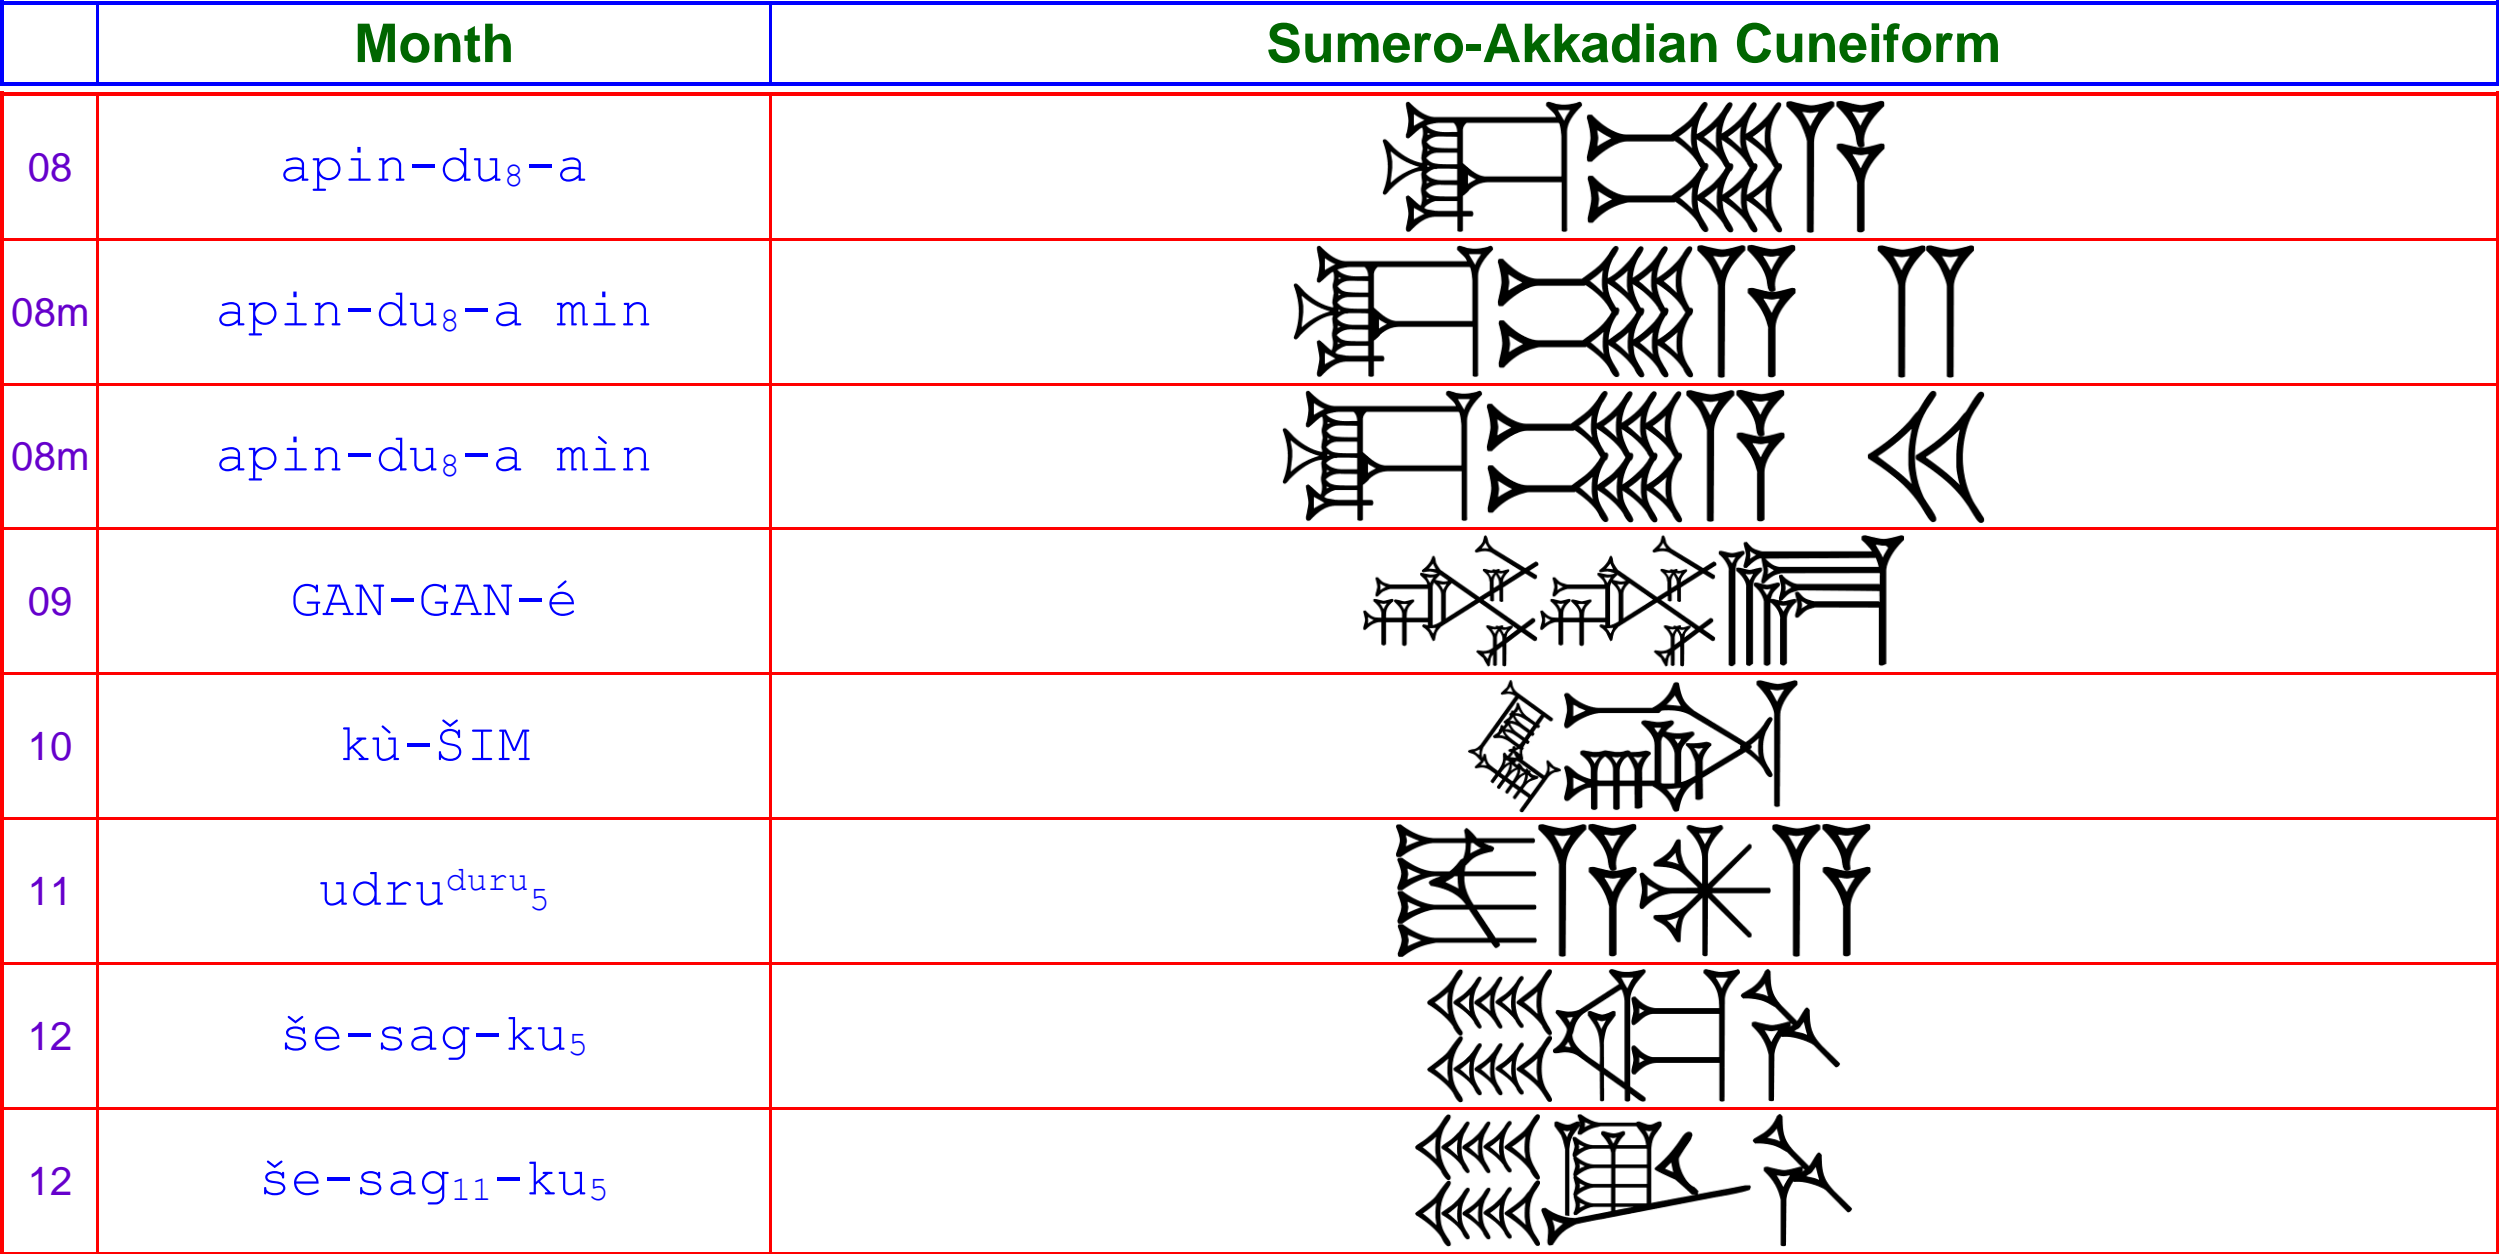 Month Sumero-Akkadian Cuneiform
08 apin-du₈-a 𒀳𒃮𒀀
08m apin-du₈-a min 𒀳𒃮𒀀 𒈫
08m apin-du₈-a mìn 𒀳𒃮𒀀 𒎙
09 GAN-GAN-é 𒃶𒃶𒂍
10 kù-ŠIM 𒆬𒋆
11 udruᵈᵘʳᵘ₅ 𒀾𒀀𒀭𒀀
12 še-sag-ku₅ 𒊺𒊕𒋻
12 še-sag₁₁-ku₅ 𒊺𒆥𒋻